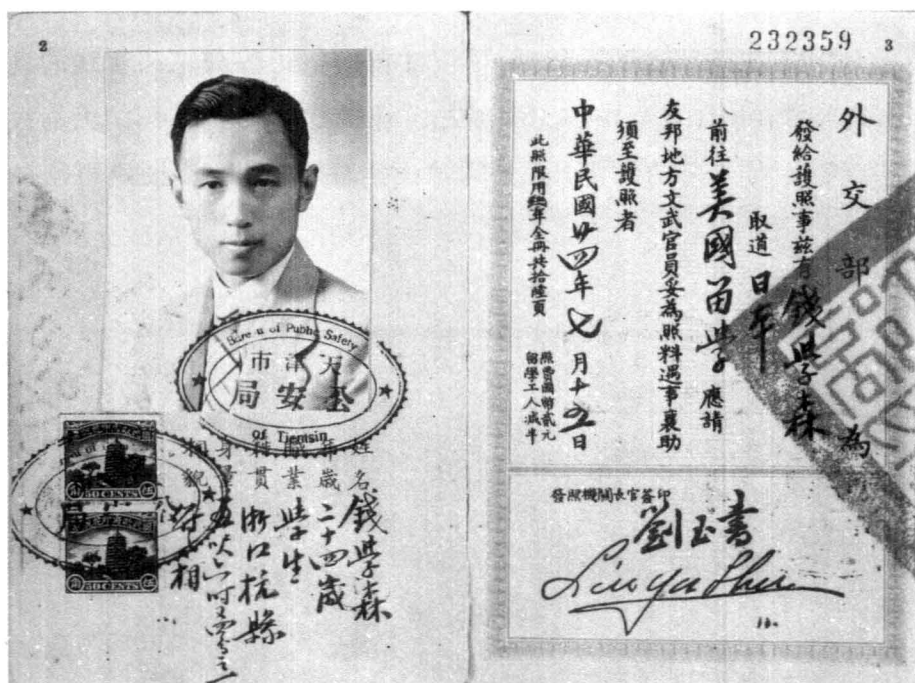 2
Bureau of Public Safety
天津市
公安局
of Tientsin
50 CENTS
50 CENTS
姓名 錢學森
年歲 二十四歲
職業 學生
籍貫 浙江杭縣
身量 五呎六吋
相貌
232359 3
外交部為
發給護照事茲有錢學森
取道日本
前往美國留學應請
友邦地方文武官員妥為照料遇事襄助
須至護照者
中華民國廿四年七月十五日
此照限用叁年全冊共拾陸頁
照費國幣貳元
留學工人減半
發照機關長官簽印
劉玉書
Liu Yu Shu